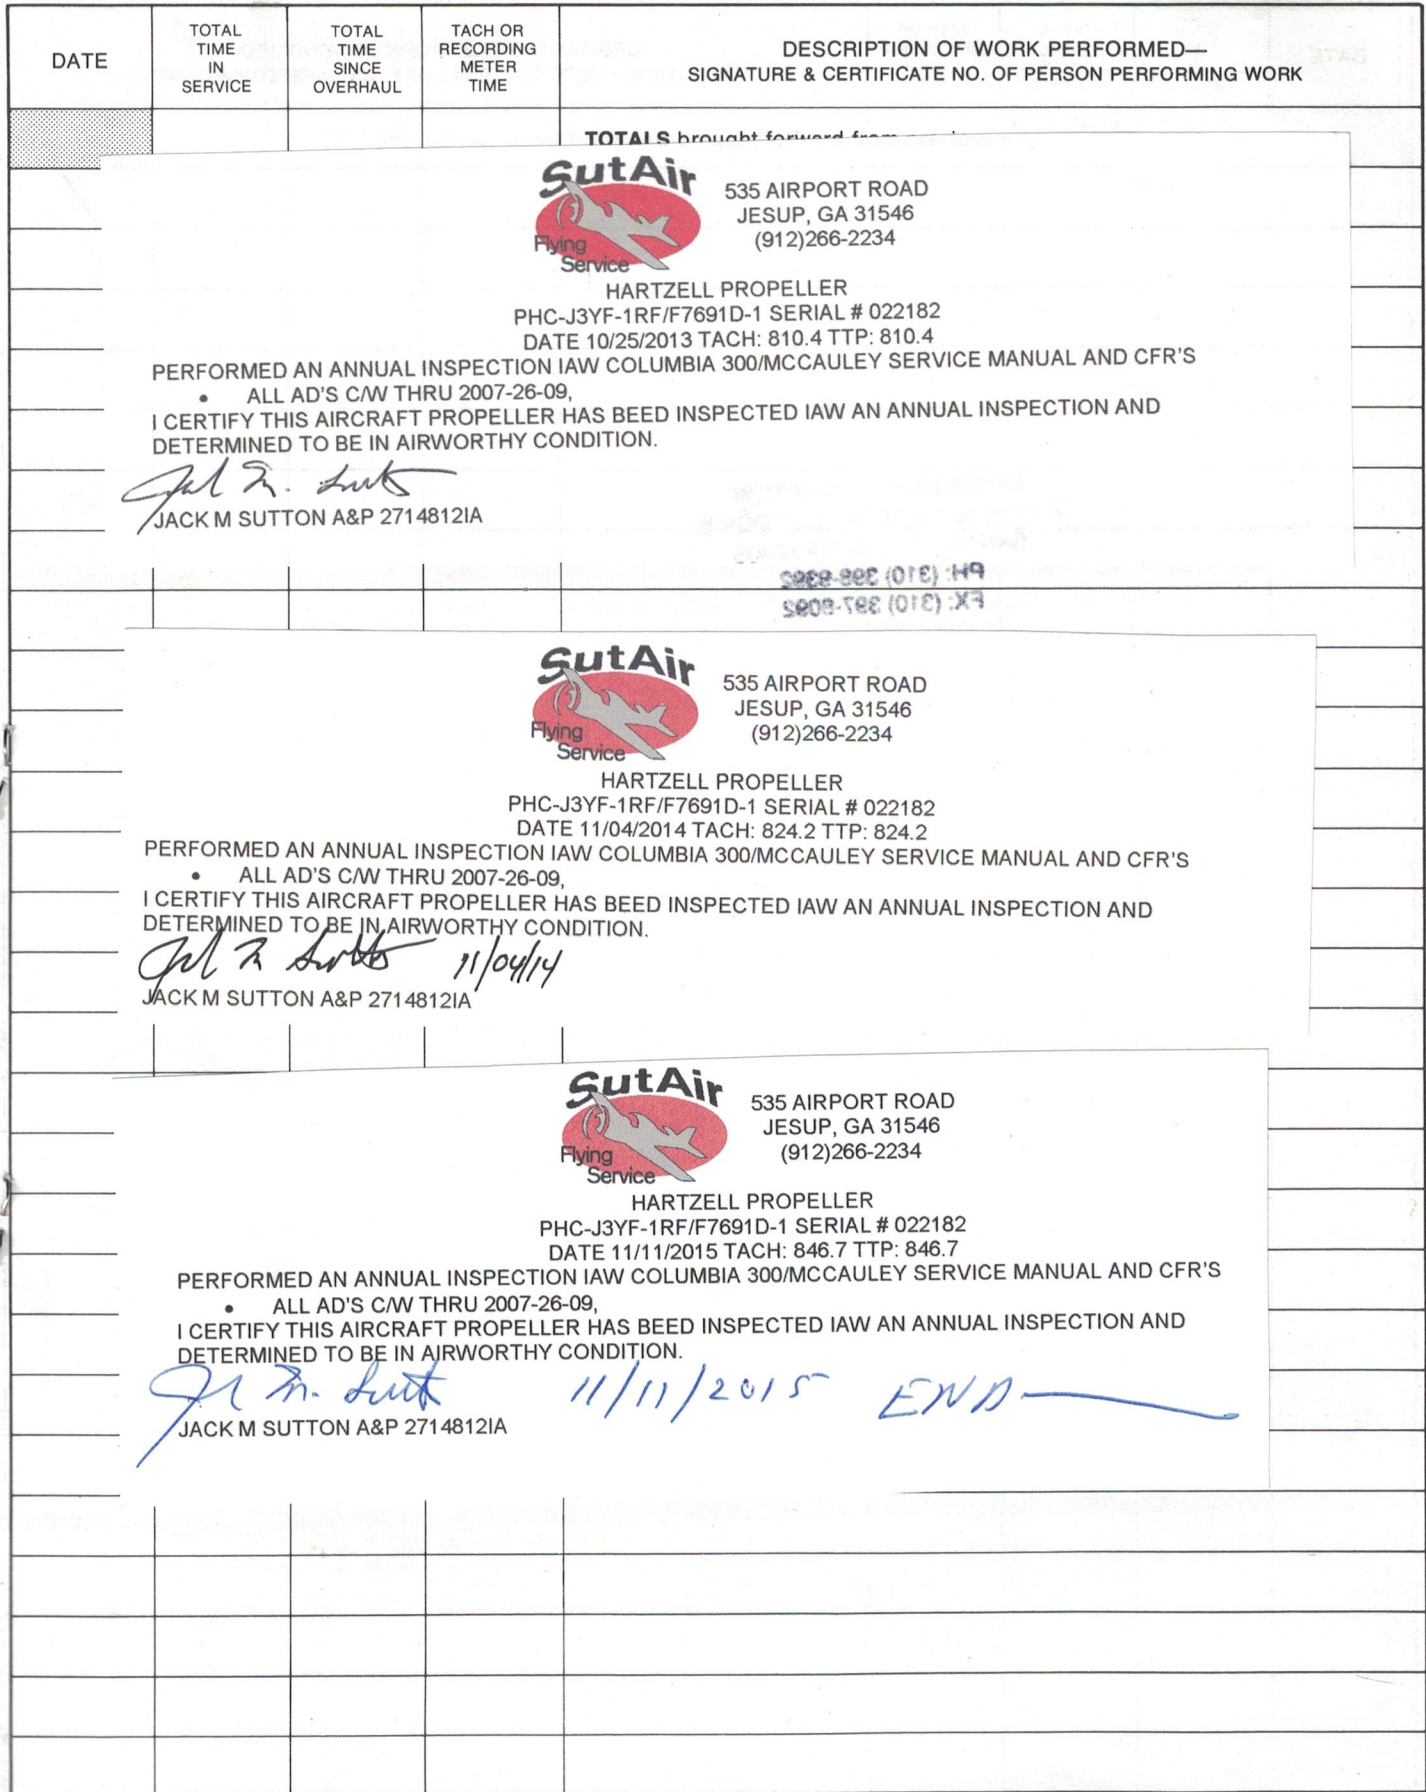 DATE
TOTAL
TIME
IN
SERVICE
TOTAL
TIME
SINCE
OVERHAUL
TACH OR
RECORDING
METER
TIME
DESCRIPTION OF WORK PERFORMED—
SIGNATURE & CERTIFICATE NO. OF PERSON PERFORMING WORK
TOTALS brought forward from
SutAir
Flying
Service
535 AIRPORT ROAD
JESUP, GA 31546
(912)266-2234
HARTZELL PROPELLER
PHC-J3YF-1RF/F7691D-1 SERIAL # 022182
DATE 10/25/2013 TACH: 810.4 TTP: 810.4
PERFORMED AN ANNUAL INSPECTION IAW COLUMBIA 300/MCCAULEY SERVICE MANUAL AND CFR'S
• ALL AD'S C/W THRU 2007-26-09,
I CERTIFY THIS AIRCRAFT PROPELLER HAS BEED INSPECTED IAW AN ANNUAL INSPECTION AND
DETERMINED TO BE IN AIRWORTHY CONDITION.
JACK M SUTTON A&P 2714812IA
PH: (310) 398-9392
FX: (310) 397-8092
SutAir
Flying
Service
535 AIRPORT ROAD
JESUP, GA 31546
(912)266-2234
HARTZELL PROPELLER
PHC-J3YF-1RF/F7691D-1 SERIAL # 022182
DATE 11/04/2014 TACH: 824.2 TTP: 824.2
PERFORMED AN ANNUAL INSPECTION IAW COLUMBIA 300/MCCAULEY SERVICE MANUAL AND CFR'S
• ALL AD'S C/W THRU 2007-26-09,
I CERTIFY THIS AIRCRAFT PROPELLER HAS BEED INSPECTED IAW AN ANNUAL INSPECTION AND
DETERMINED TO BE IN AIRWORTHY CONDITION.
11/04/14
JACK M SUTTON A&P 2714812IA
SutAir
Flying
Service
535 AIRPORT ROAD
JESUP, GA 31546
(912)266-2234
HARTZELL PROPELLER
PHC-J3YF-1RF/F7691D-1 SERIAL # 022182
DATE 11/11/2015 TACH: 846.7 TTP: 846.7
PERFORMED AN ANNUAL INSPECTION IAW COLUMBIA 300/MCCAULEY SERVICE MANUAL AND CFR'S
• ALL AD'S C/W THRU 2007-26-09,
I CERTIFY THIS AIRCRAFT PROPELLER HAS BEED INSPECTED IAW AN ANNUAL INSPECTION AND
DETERMINED TO BE IN AIRWORTHY CONDITION.
11/11/2015 END
JACK M SUTTON A&P 2714812IA